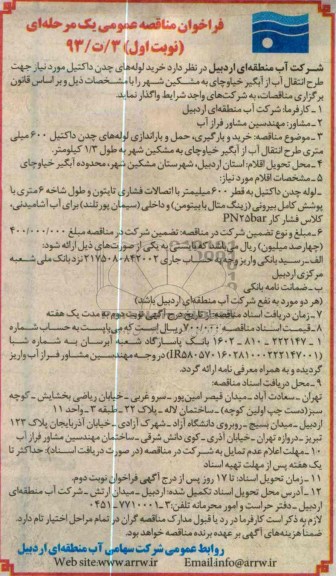 فراخوان مناقصه عمومی یک مرحله‌ای
(نوبت اول) ۹۳/ت/۳
شرکت آب منطقه‌ای اردبیل در نظر دارد خرید لوله‌های چدن داکتیل مورد نیاز جهت
طرح انتقال آب از آبگیر خیاوچای به مشکین شهر را با مشخصات ذیل و بر اساس قانون
برگزاری مناقصات، به شرکت‌های واجد شرایط واگذار نماید.
۱ـ کارفرما: شرکت آب منطقه‌ای اردبیل
۲ـ مشاور: مهندسین مشاور فراز آب
۳ـ موضوع مناقصه: خرید و بارگیری، حمل و باراندازی لوله‌های چدن داکتیل ۶۰۰ میلی
متری طرح انتقال آب از آبگیر خیاوچای به مشکین شهر به طول ۱/۳ کیلومتر.
۴ـ محل تحویل اقلام: استان اردبیل، شهرستان مشکین شهر، محدوده آبگیر خیاوچای
۵ـ مشخصات اقلام مورد نیاز:
ـ لوله چدن داکتیل به قطر ۶۰۰ میلیمتر با اتصالات فشاری تایتون و طول شاخه ۶ متری با
پوشش کامل بیرونی (زینگ متال با بیتومن) و داخلی (سیمان پورتلند) برای آب آشامیدنی،
کلاس فشار کار PN۲۵bar
۶ـ مبلغ و نوع تضمین شرکت در مناقصه: تضمین شرکت در مناقصه مبلغ ۴۰۰/۰۰۰/۰۰۰
(چهارصد میلیون) ریال می‌باشد که بایستی به یکی از صورت‌های ذیل ارائه شود:
الف ـ رسید بانکی واریز وجه به حساب جاری ۲۱۷۵۰۸۰۸۴۲۰۰۲ نزد بانک ملی شعبه
مرکزی اردبیل
ب ـ ضمانت نامه بانکی
(هر دو مورد به نفع شرکت آب منطقه‌ای اردبیل باشد)
۷ـ زمان دریافت اسناد مناقصه: از تاریخ درج آگهی نوبت دوم به مدت یک هفته
۸ـ قیمت اسناد مناقصه ۷۰۰/۰۰۰ ریال است که می‌بایست به حساب شماره
۱ـ ۲۲۲۱۴۷ ـ ۸۱۰ ـ ۱۶۰۲ بانک پاسارگاد شعبه آبرسان به شماره شبا
(IR۵۸۰۵۷۰۱۶۰۲۸۱۰۰۰۲۲۲۱۴۷۰۰۱) در وجه مهندسین مشاور فراز آب واریز
گردیده و به همراه معرفی نامه ارائه گردد.
۹ـ محل دریافت اسناد مناقصه:
تهران ـ سعادت آباد ـ میدان قیصر امین‌پور ـ سرو غربی ـ خیابان ریاضی بخشایش ـ کوچه
سبز (دست چپ اولین کوچه) ـ ساختمان لاله ـ پلاک ۲۲ ـ طبقه ۳ ـ واحد ۱۱
اردبیل ـ میدان بسیج ـ روبروی دانشگاه آزاد ـ شهرک آزادی ـ خیابان آذربایجان پلاک ۱۲۳
تبریز ـ دروازه تهران ـ خیابان آذری ـ کوی دانش شرقی ـ ساختمان مهندسین مشاور فراز آب
۱۰ـ مهلت اعلام عدم تمایل به شرکت در مناقصه (در صورت دریافت اسناد): حداکثر تا
یک هفته پس از مهلت تهیه اسناد
۱۱ـ زمان تحویل اسناد: تا ۱۷ روز پس از درج آگهی فراخوان نوبت دوم.
۱۲ـ آدرس محل تحویل اسناد تکمیل شده: اردبیل ـ میدان ارتش ـ شرکت آب منطقه‌ای
اردبیل ـ دفتر حراست و امور محرمانه تلفن: ۳ـ۷۷۱۱۰۰۱ـ۰۴۵۱
لازم به ذکر است کارفرما در رد یا قبول مدارک مناقصه گران در تمام مراحل اختیار تام دارد.
ضمناً هزینه‌های آگهی بر عهده برنده مناقصه خواهد بود.
روابط عمومی شرکت سهامی آب منطقه‌ای اردبیل
Web site:www.arrw.ir Email:info@arrw.ir